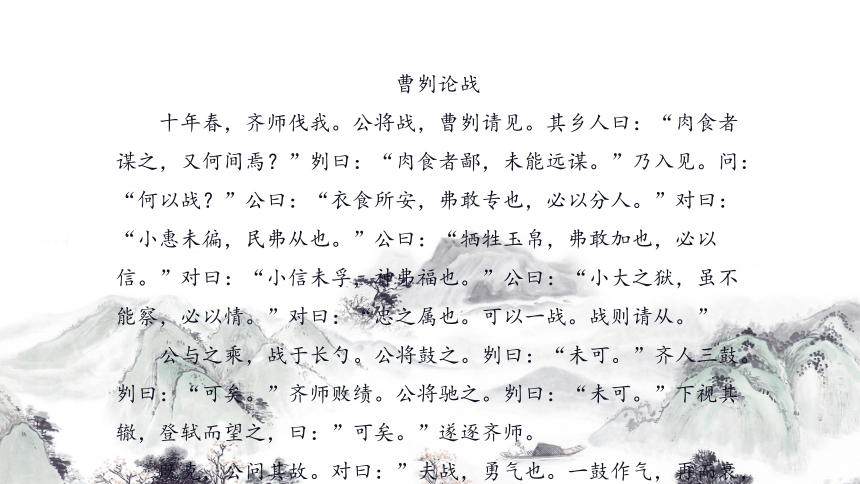 曹刿论战
十年春，齐师伐我。公将战，曹刿请见。其乡人曰：“肉食者
谋之，又何间焉？”刿曰：“肉食者鄙，未能远谋。”乃入见。问：
“何以战？”公曰：“衣食所安，弗敢专也，必以分人。”对曰：
“小惠未徧，民弗从也。”公曰：“牺牲玉帛，弗敢加也，必以
信。”对曰：“小信未孚，神弗福也。”公曰：“小大之狱，虽不
能察，必以情。”对曰：“忠之属也。可以一战。战则请从。”
公与之乘，战于长勺。公将鼓之。刿曰：“未可。”齐人三鼓。
刿曰：“可矣。”齐师败绩。公将驰之。刿曰：“未可。”下视其
辙，登轼而望之，曰：”可矣。”遂逐齐师。
既克，公问其故。对曰：”夫战，勇气也。一鼓作气，再而衰